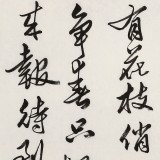 有花枝俏
争春只
来報待到